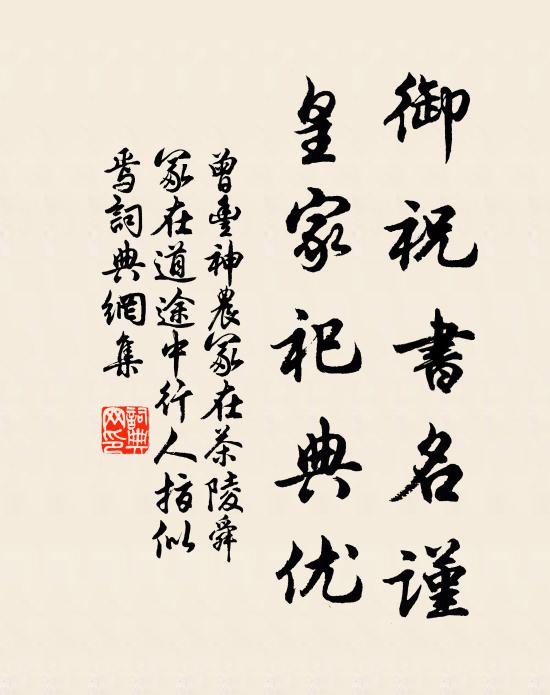 御祝書名谨
皇家祀典优
曾豐神農冢在茶陵舜
冢在道途中行人指似
焉詞典網集
詞典
网印